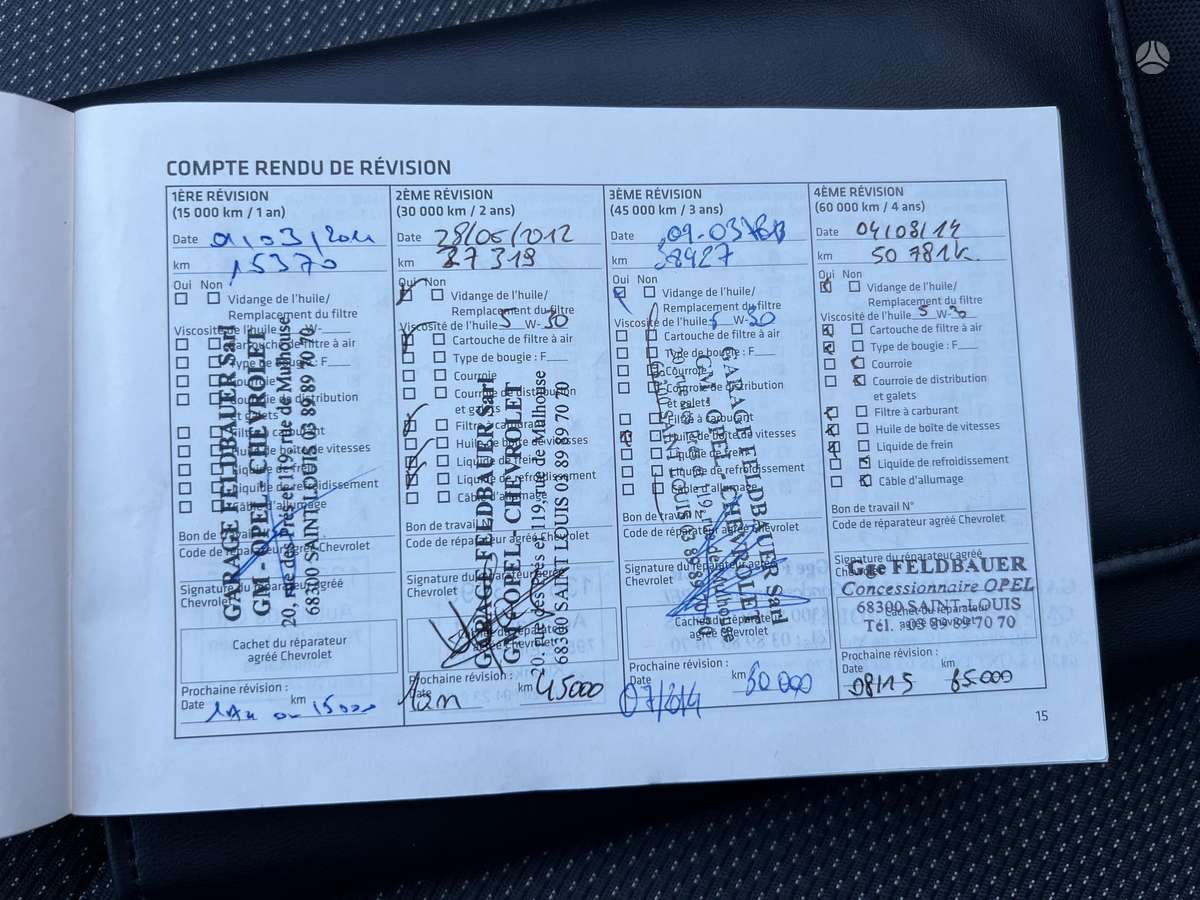 COMPTE RENDU DE RÉVISION
1ÈRE RÉVISION
(15 000 km / 1 an)
Date 01/03/2011
km 15370
Oui Non
Vidange de l'huile/
Remplacement du filtre
Viscosité de l'huile W-
Cartouche de filtre à air
Type de bougie : F
Courroie
Courroie de distribution
et galets
Filtre à carburant
Huile de boîte de vitesses
Liquide de frein
Liquide de refroidissement
Câble d'allumage
Bon de travail
Code de réparateur agréé Chevrolet
Signature du réparateur agréé
Chevrolet
Cachet du réparateur
agréé Chevrolet
GARAGE FELDBAUER Sarl
GM - OPEL - CHEVROLET
20, rue des Prés et 119, rue de Mulhouse
68300 SAINT LOUIS 03 89 89 70 70
Prochaine révision :
Date km
1 an ou 15000
2ÈME RÉVISION
(30 000 km / 2 ans)
Date 28/06/2012
km 27319
Oui Non
Vidange de l'huile/
Remplacement du filtre
Viscosité de l'huile 5 W- 30
Cartouche de filtre à air
Type de bougie : F
Courroie
Courroie de distribution
et galets
Filtre à carburant
Huile de boîte de vitesses
Liquide de frein
Liquide de refroidissement
Câble d'allumage
Bon de travail
Code de réparateur agréé Chevrolet
Signature du réparateur agréé
Chevrolet
Cachet du réparateur
agréé Chevrolet
GARAGE FELDBAUER Sarl
GM - OPEL - CHEVROLET
20, rue des Prés et 119, rue de Mulhouse
68300 SAINT LOUIS 03 89 89 70 70
Prochaine révision :
Date 1an km 45000
3ÈME RÉVISION
(45 000 km / 3 ans)
Date 09-07
km 38427
Oui Non
Vidange de l'huile/
Remplacement du filtre
Viscosité de l'huile 5 W- 30
Cartouche de filtre à air
Type de bougie : F
Courroie
Courroie de distribution
et galets
Filtre à carburant
Huile de boîte de vitesses
Liquide de frein
Liquide de refroidissement
Câble d'allumage
Bon de travail
Code de réparateur agréé Chevrolet
Signature du réparateur agréé
Chevrolet
Cachet du réparateur
agréé Chevrolet
GARAGE FELDBAUER Sarl
GM - OPEL - CHEVROLET
20, rue des Prés et 119, rue de Mulhouse
68300 SAINT LOUIS 03 89 89 70 70
Prochaine révision :
Date 07/2014 km 60 000
4ÈME RÉVISION
(60 000 km / 4 ans)
Date 04/08/14
km 50 781 k.
Oui Non
Vidange de l'huile/
Remplacement du filtre
Viscosité de l'huile 5 W- 30
Cartouche de filtre à air
Type de bougie : F
Courroie
Courroie de distribution
et galets
Filtre à carburant
Huile de boîte de vitesses
Liquide de frein
Liquide de refroidissement
Câble d'allumage
Bon de travail N°
Code de réparateur agréé Chevrolet
Signature du réparateur agréé
Chevrolet
Cachet du réparateur
agréé Chevrolet
Gge FELDBAUER
Concessionnaire OPEL
68300 SAINT-LOUIS
Tél. 03 89 89 70 70
Prochaine révision :
Date km
08/15 65.000
15